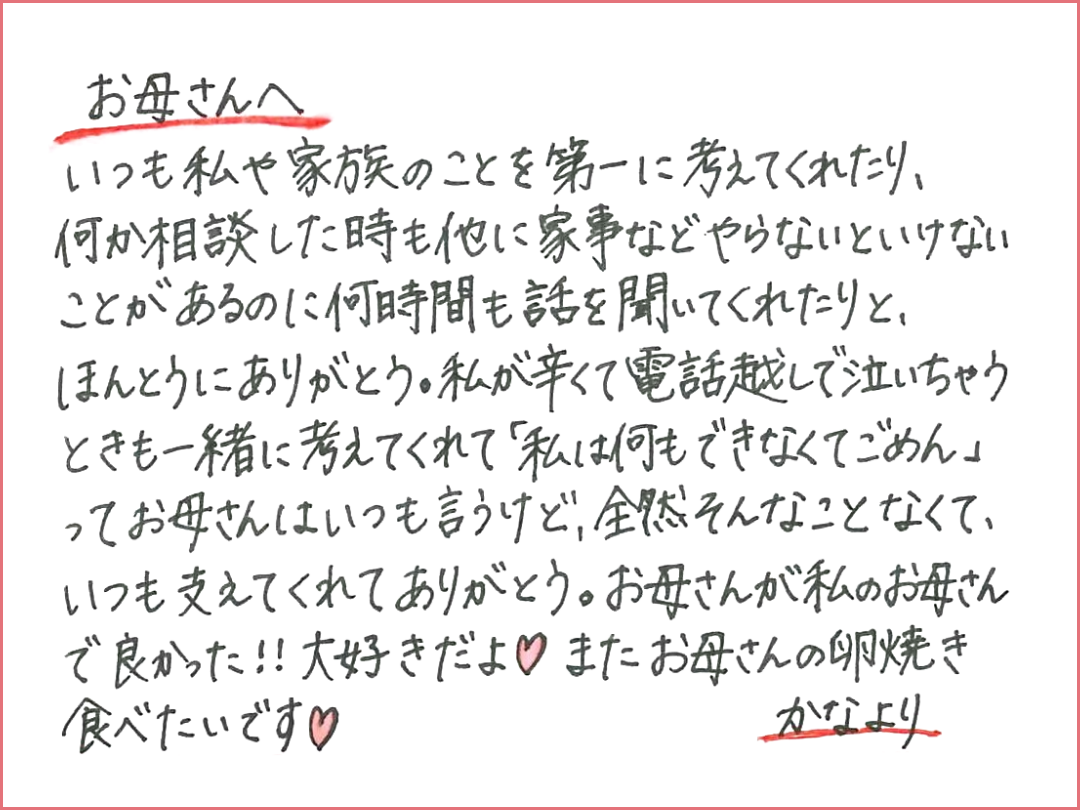 お母さんへ
いつも私や家族のことを第一に考えてくれたり、
何か相談した時も他に家事などやらないといけない
ことがあるのに何時間も話を聞いてくれたりと、
ほんとうにありがとう。私が辛くて電話越しで泣いちゃう
ときも一緒に考えてくれて「私は何もできなくてごめん」
ってお母さんはいつも言うけど、全然そんなことなくて、
いつも支えてくれてありがとう。お母さんが私のお母さん
で良かった!! 大好きだよ♡ またお母さんの卵焼き
食べたいです♡
かなより